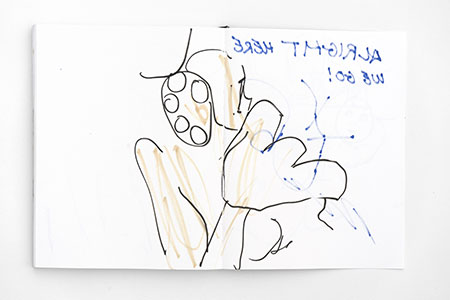 ALRIGHT HERE
WE GO!